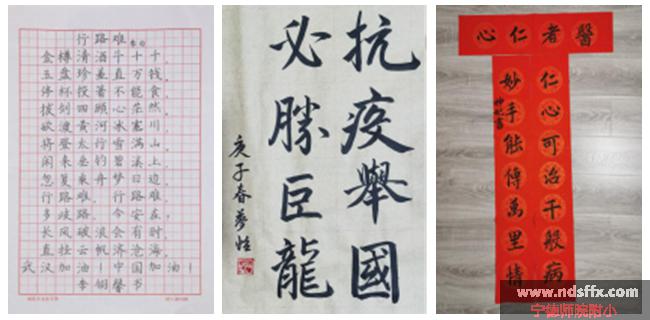 行路难
李白
金樽清酒斗十千，
玉盘珍羞直万钱。
停杯投箸不能食，
拔剑四顾心茫然。
欲渡黄河冰塞川，
将登太行雪满山。
闲来垂钓碧溪上，
忽复乘舟梦日边。
行路难，行路难，
多歧路，今安在？
长风破浪会有时，
直挂云帆济沧海。
武汉加油！中国加油！
李馨书
抗疫舉國
必勝巨龍
庚子春梦怡
醫者仁心
仁心可治千般病
妙手能傳萬里情
www.ndsffx.com
宁德师院附小